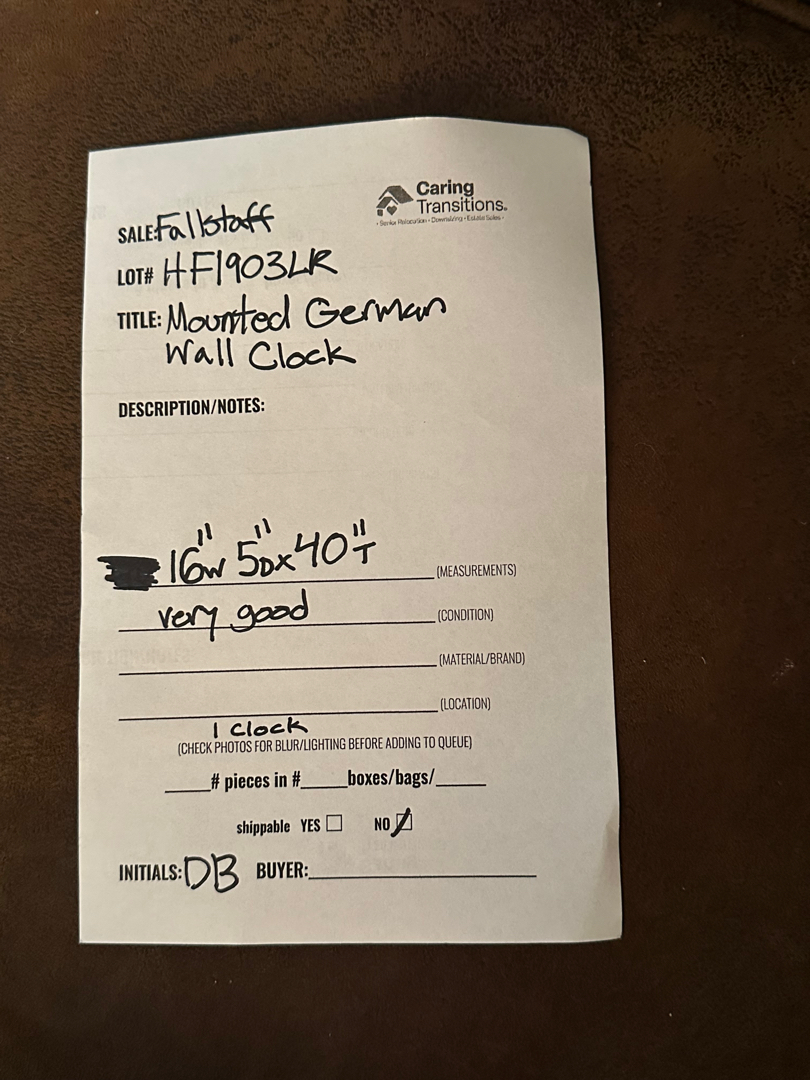 Caring
Transitions.
• Senior Relocation • Downsizing • Estate Sales •
SALE: Fallstaff
LOT# HF1903LR
TITLE: Mounted German
Wall Clock
DESCRIPTION/NOTES:
16"W 5"D x 40"T (MEASUREMENTS)
very good (CONDITION)
(MATERIAL/BRAND)
(LOCATION)
1 Clock
(CHECK PHOTOS FOR BLUR/LIGHTING BEFORE ADDING TO QUEUE)
____# pieces in #____boxes/bags/____
shippable YES ☐ NO ☑
INITIALS: DB BUYER:____